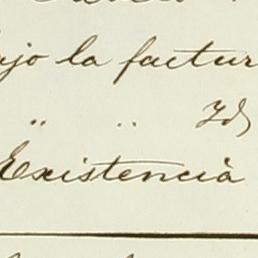 ajo la factur
" " Id
Existencia